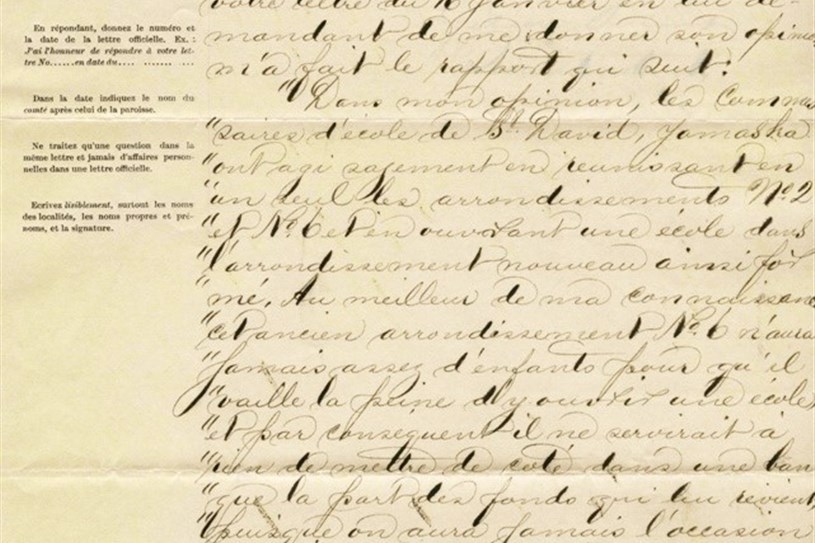 En répondant, donnez le numéro et
la date de la lettre officielle. Ex.:
J'ai l'honneur de répondre à votre let-
tre No......en date du.... ........
Dans la date indiquez le nom du
comté après celui de la paroisse.
Ne traitez qu'une question dans la
même lettre et jamais d'affaires person-
nelles dans une lettre officielle.
Ecrivez lisiblement, surtout les noms
des localités, les noms propres et pré-
noms, et la signature.
votre lettre du 16 janvier en lui de-
mandant de me donner son opinio
m'a fait le rapport qui suit:
"Dans mon opinion, les commis
"saires d'école de St David, Yamaska
"ont agi sagement en réunissant en
"un seul les arrondissements No 2
"et No 6 et en ouvrant une école dans
"l'arrondissement nouveau ainsi for
"mé. Au meilleur de ma connaissance
"cet ancien arrondissement No 6 n'aura
"jamais assez d'enfants pour qu'il
"vaille la peine d'y ouvrir une école,
"et par conséquent il ne servirait à
"rien de mettre de coté dans une ban
"que la part des fonds qui lui revient,
"puisque on aura jamais l'occasion